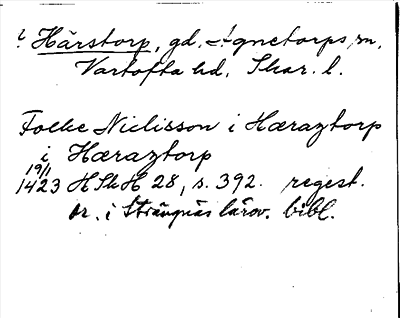 ? Härstorp, gd. Agnetorps sn,
Vartofta hd, Skar. l.
Folke Niclisson i Hæraztorp
i Hæraztorp
19/1
1423 HSkH 28, s. 392. regest.
or. i Strängnäs lärov. bibl.